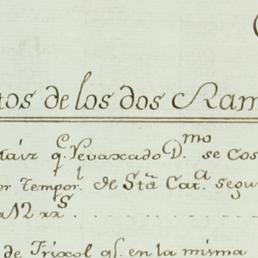 tos de los dos Ram
q.e Yevaxado D.mo se cos
or tempor.l de Sta Cat.a segu
a 12 xx.s
de Trixol q.l en la misma